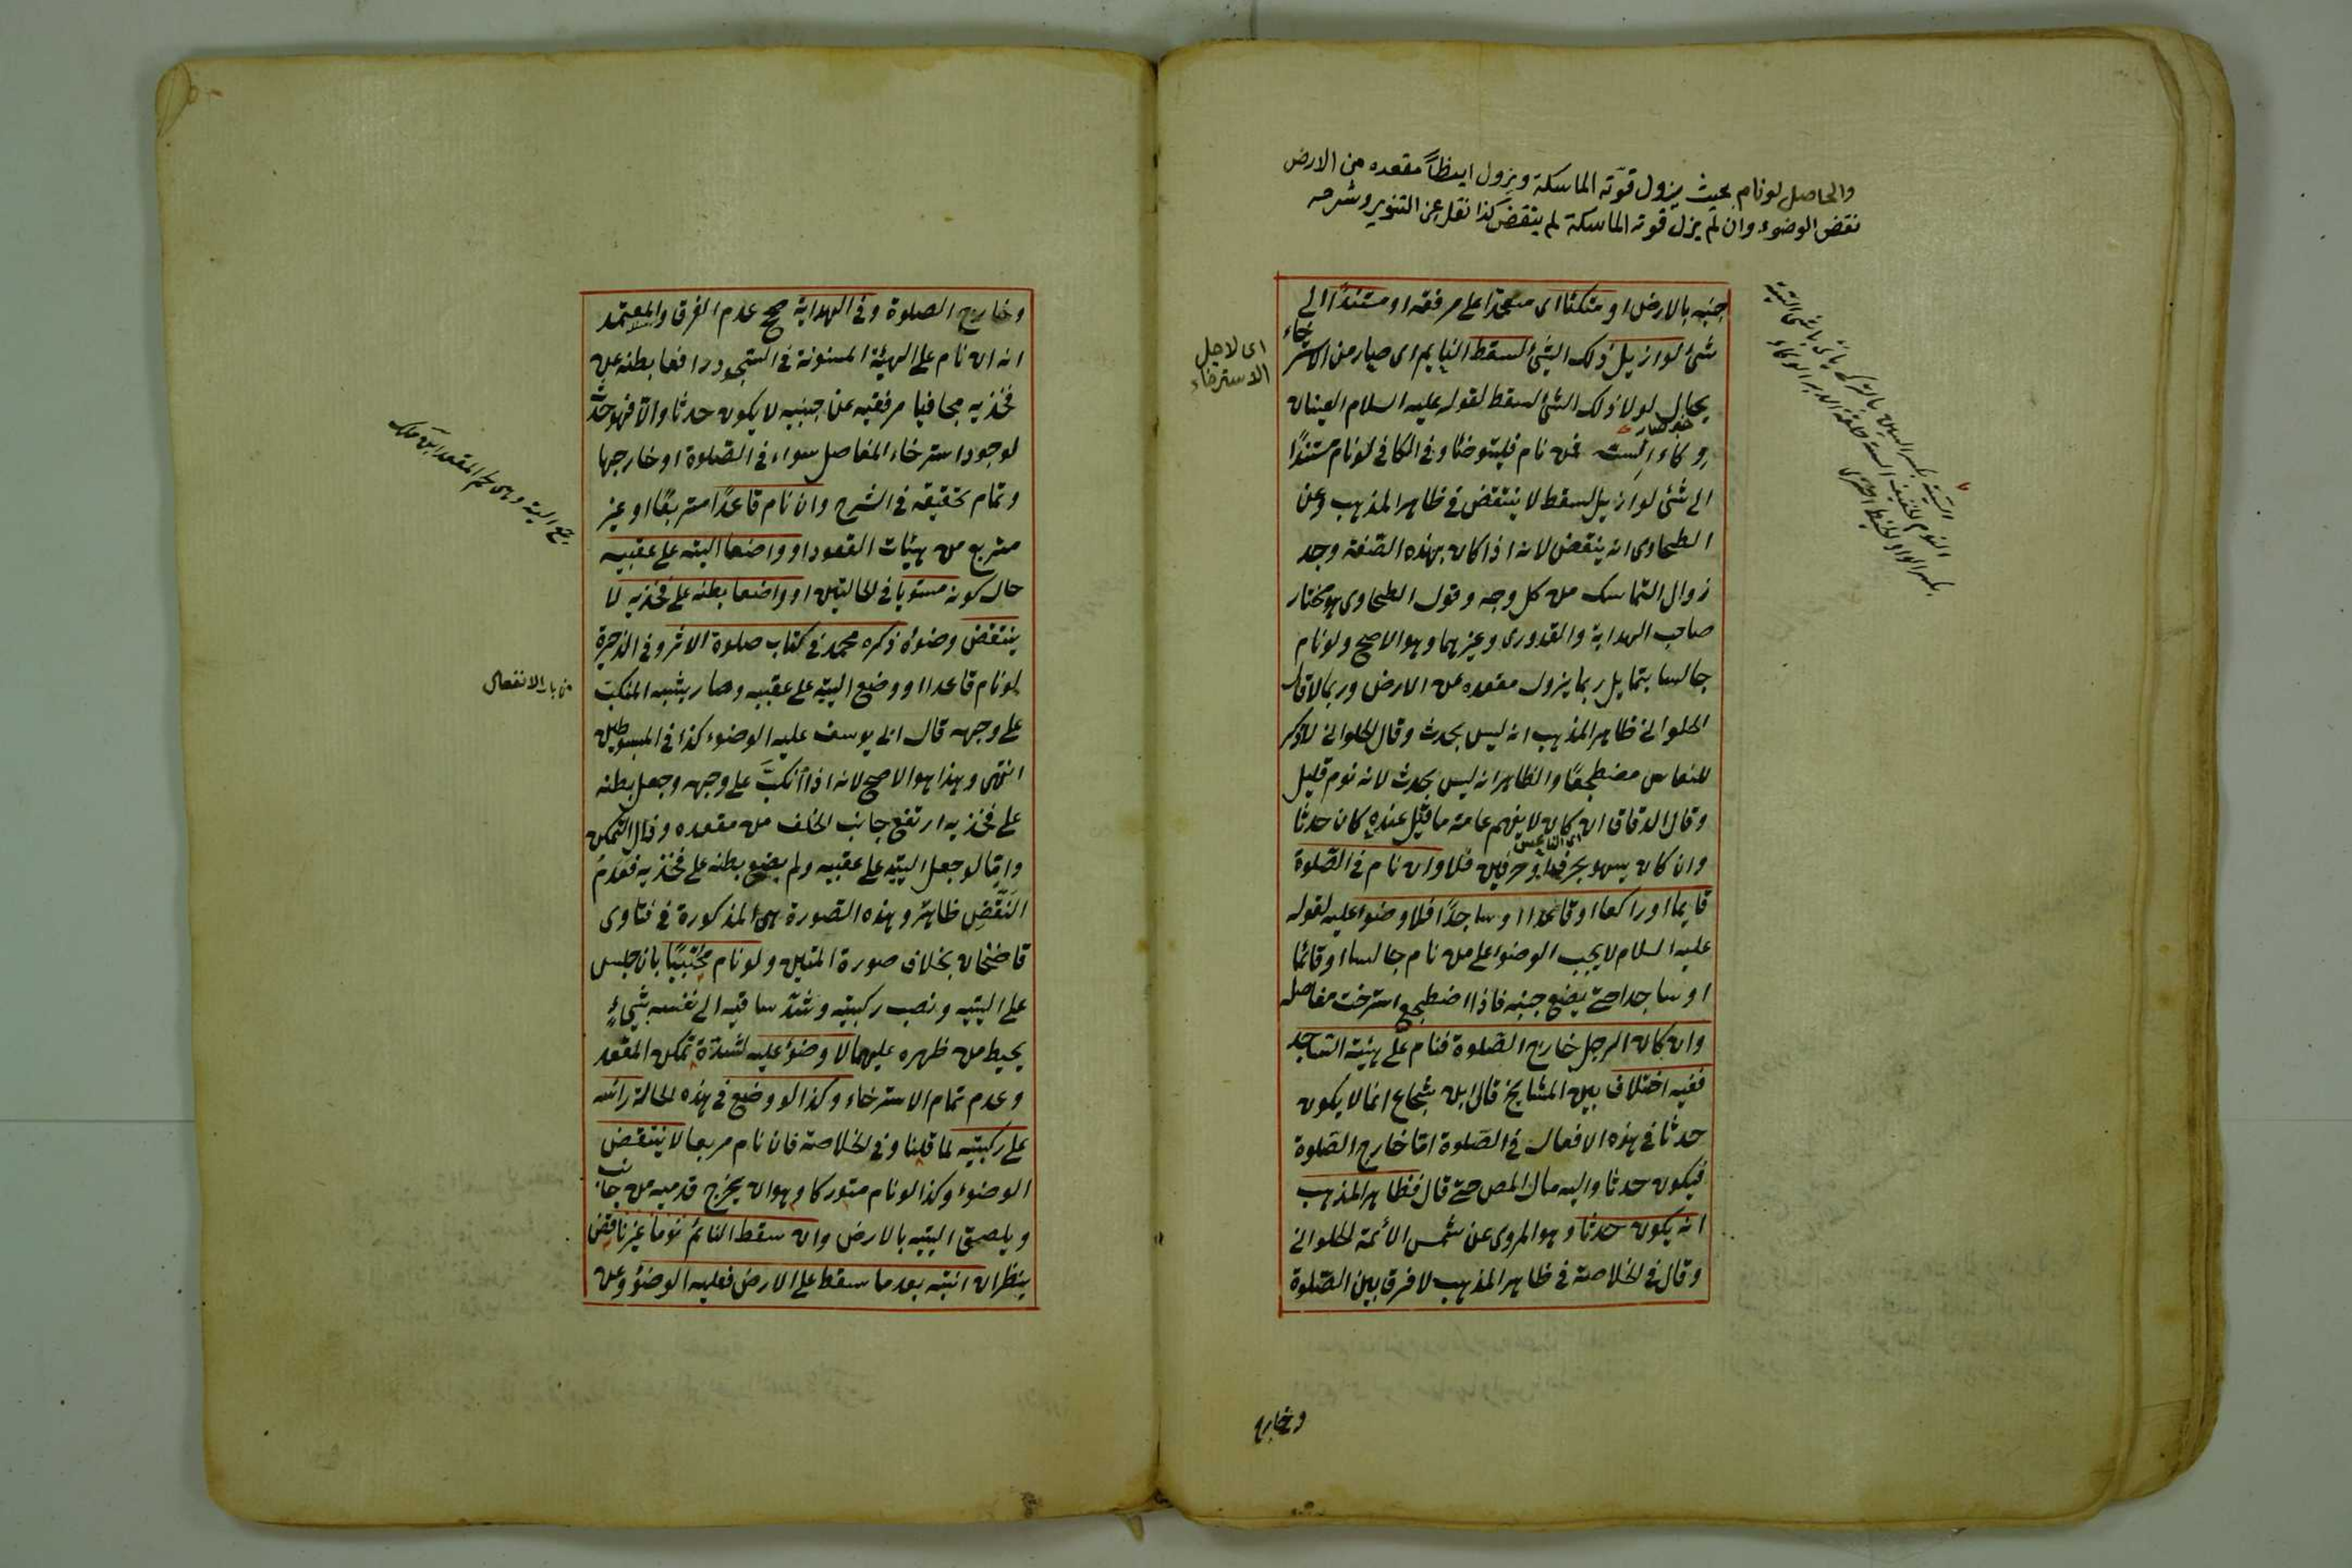 والحاصل لو نام بحيث يزول قوّته الماسكة ويزول ايضاً مقعده من الارض
نقض الوضوء وان لم يزل قوته الماسكة لم ينقض كذا نقل عن التنوير وشرحه
جنبه بالارض او متكئا اى معتمدا على مرفقه او مستندًا الى
شئ لو ازيل ذلك الشئ لسقط النايم اى صار من الاسترخاء
بحال لولا ذلك الشئ لسقط لقوله عليه السلام العينان
وكاء السته فمن نام فليتوضأ وفى الكافى لو نام مستندًا
الى شئ لو ازيل لسقط لا ينتقض فى ظاهر المذهب وعن
الطحاوى انه ينقض لانه اذا كان بهذه الصّفة وجد
زوال التماسك من كل وجه وقول الطحاوى هو مختار
صاحب الهداية والقدورى وغيرهما وهو الاصح ولو نام
جالسا يتمايل ربما يزول مقعده عن الارض وربما لا قال
الحلوانى ظاهر المذهب انه ليس بحدث وقال الحلوانى لا ذكر
للنعاس مضطجعًا والظاهر انه ليس بحدث لانه نوم قليل
وقال الدقاق ان كان لا يفهم عامة ما قيل عنده كان حدثا
اى الناعس
وان كان يسهو بحرف او حرفين فلا وان نام فى الصّلوة
قايما او راكعا او قاعدا او ساجدًا فلا وضوء عليه لقوله
عليه السلام لا يجب الوضوء على من نام جالسا او قائما
او ساجدا حتى يضع جنبه فاذا اضطجع استرخت مفاصله
وان كان الرجل خارج الصّلوة فنام على هيئة الساجد
ففيه اختلاف بين المشايخ قال ابن شجاع انما لا يكون
حدثا فى هذه الافعال فى الصّلوة امّا خارج الصّلوة
فيكون حدثا واليه مال المص حتى قال فظاهر المذهب
انه يكون حدثا وهو المروى عن شمس الأئمة الحلوانى
وقال فى الخلاصة فى ظاهر المذهب لا فرق بين الصّلوة
اى لاجل
الاسترخاء
وخارج
وخارج الصلوة وفى الهداية صحح عدم الفرق والمعتمد
انه ان نام على الهيئة المسنونة فى السّجود رافعا بطنه عن
فخذيه مجافيا مرفقيه عن جنبيه لا يكون حدثا والّا فهو حدث
لوجود استرخاء المفاصل سواء فى الصّلوة او خارجها
وتمام تحقيقه فى الشرح وان نام قاعدًا متربعًا او غير
متربع من هيئات القعود او واضعا اليتيه على عقبيه
حال كونه مستويا فى الحالتين او واضعا بطنه على فخذيه لا
ينتقض وضوئه ذكره محمد فى كتاب صلوة الاثر وفى الذخيرة
لو نام قاعدا او وضع اليتيه على عقبيه وصار يشبه المنكبّ
على وجهه قال ابى يوسف عليه الوضوء كذا فى المبسوطين
انتهى وهذا هو الاصح لانه اذا أنكبّ على وجهه وجعل بطنه
على فخذيه ارتفع جانب الخلف من مقعده وزال التمكن
وامّا لو جعل اليتيه على عقبيه ولم يضع بطنه على فخذيه فعدمُ
النّقض ظاهر وهذه الصّورة هى المذكورة فى فتاوى
قاضيخان بخلاف صورة المتن ولو نام محتبيًا بان جلس
على اليتيه ونصب ركبتيه وشدّ ساقيه الى نفسه بشيءٍ
يحيط من ظهره عليهما لا وضوء عليه لشدّة تمكن المقعد
وعدم تمام الاسترخاء وكذا لو وضع فى هذه الحالة رأسه
على ركبتيه لما قلنا وفى الخلاصة فان نام مربعا لا ينتقض
الوضوء وكذا لو نام متوركا وهو ان يخرج قدميه من جانب
ويلصق اليتيه بالارض وان سقط النائم نوما غير ناقض
ينظر ان انتبه بعد ما سقط على الارض فعليه الوضوء وعن
من باب الانفعال